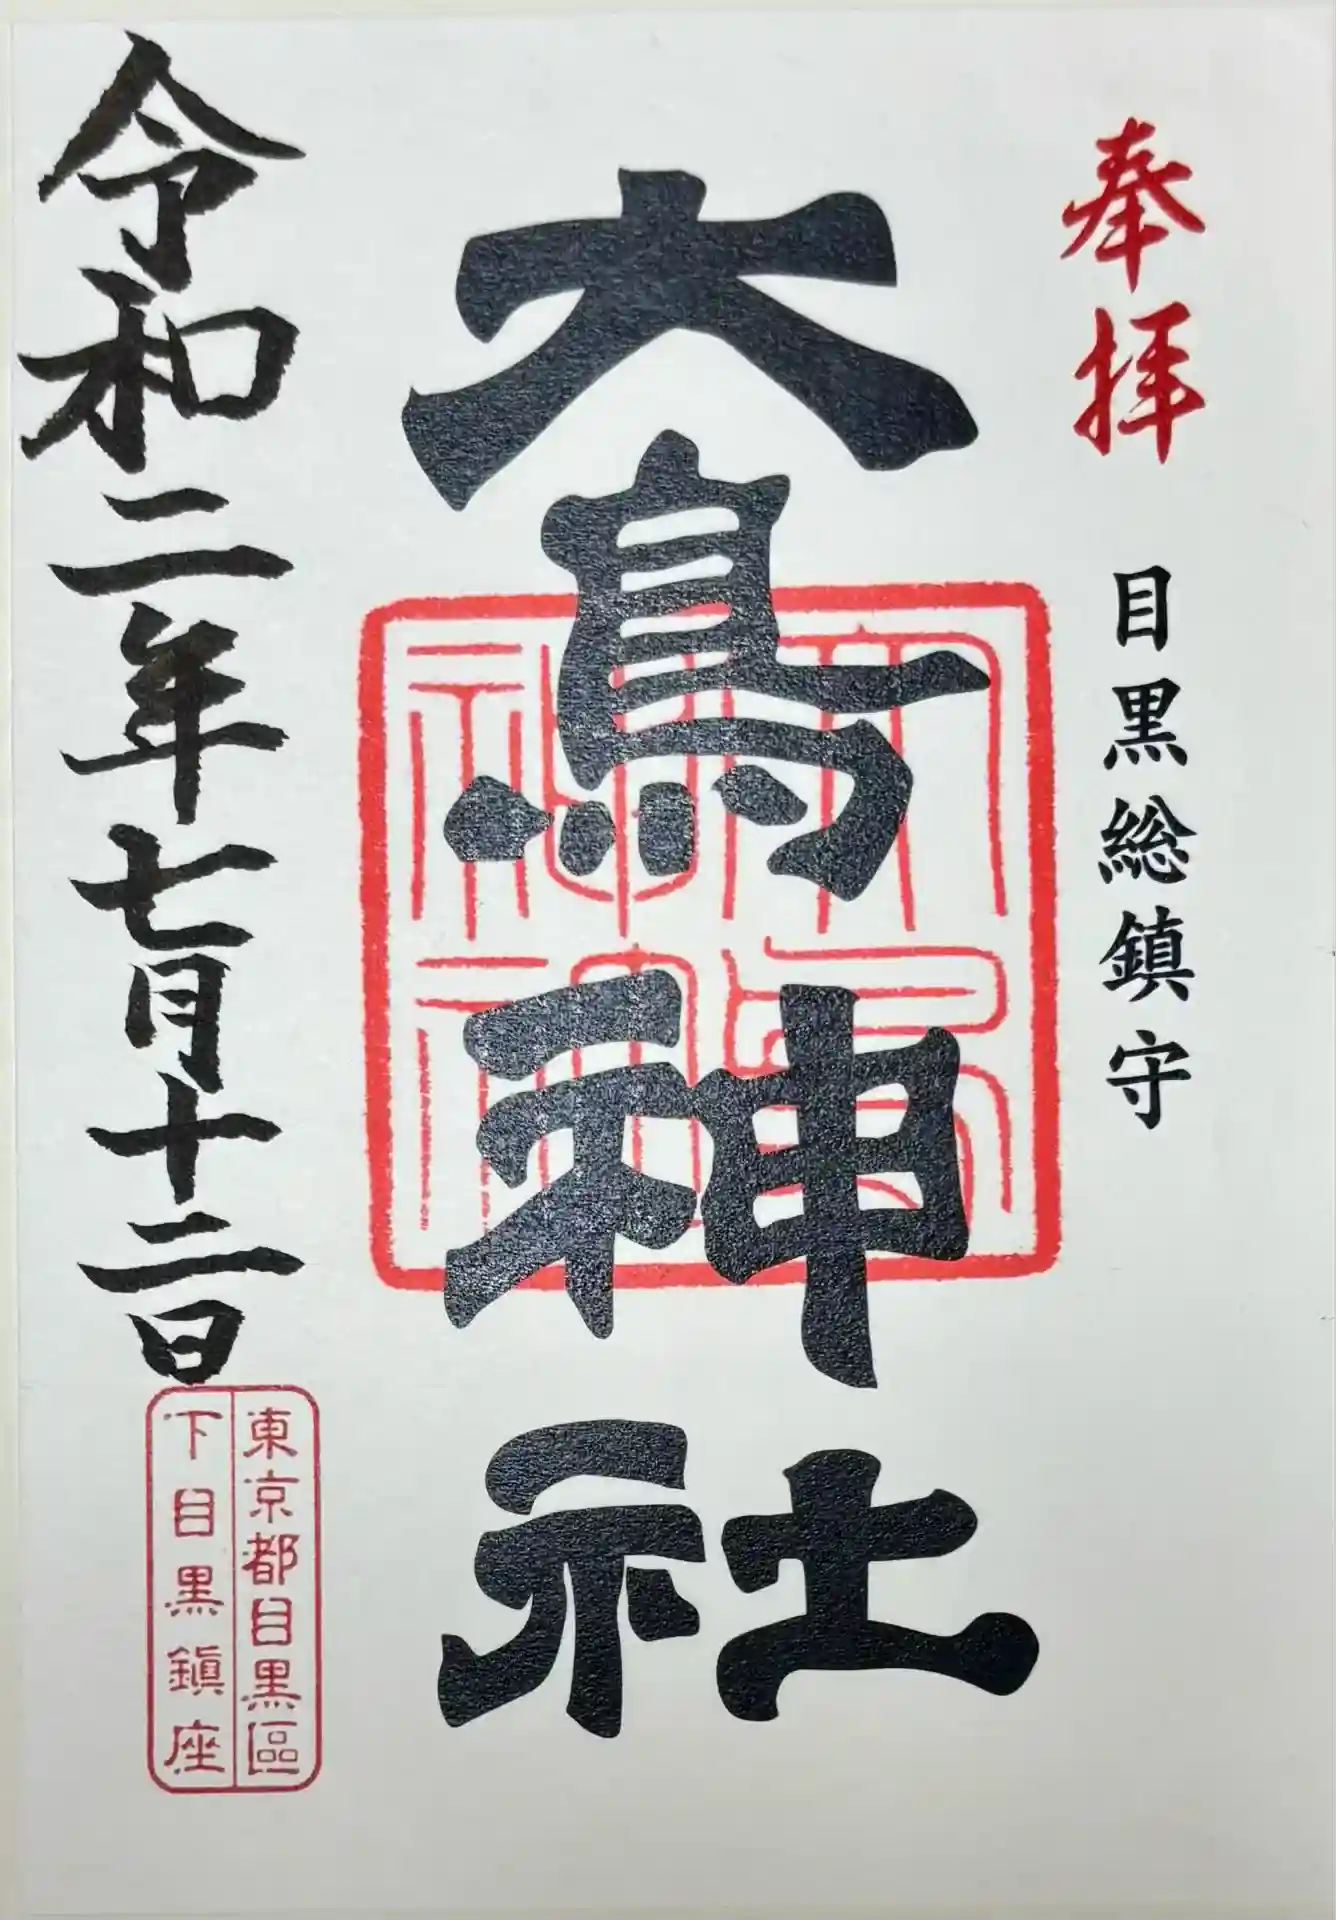 奉拝
目黒総鎮守
大鳥神社
令和二年七月十二日
東京都目黒區
下目黒鎮座